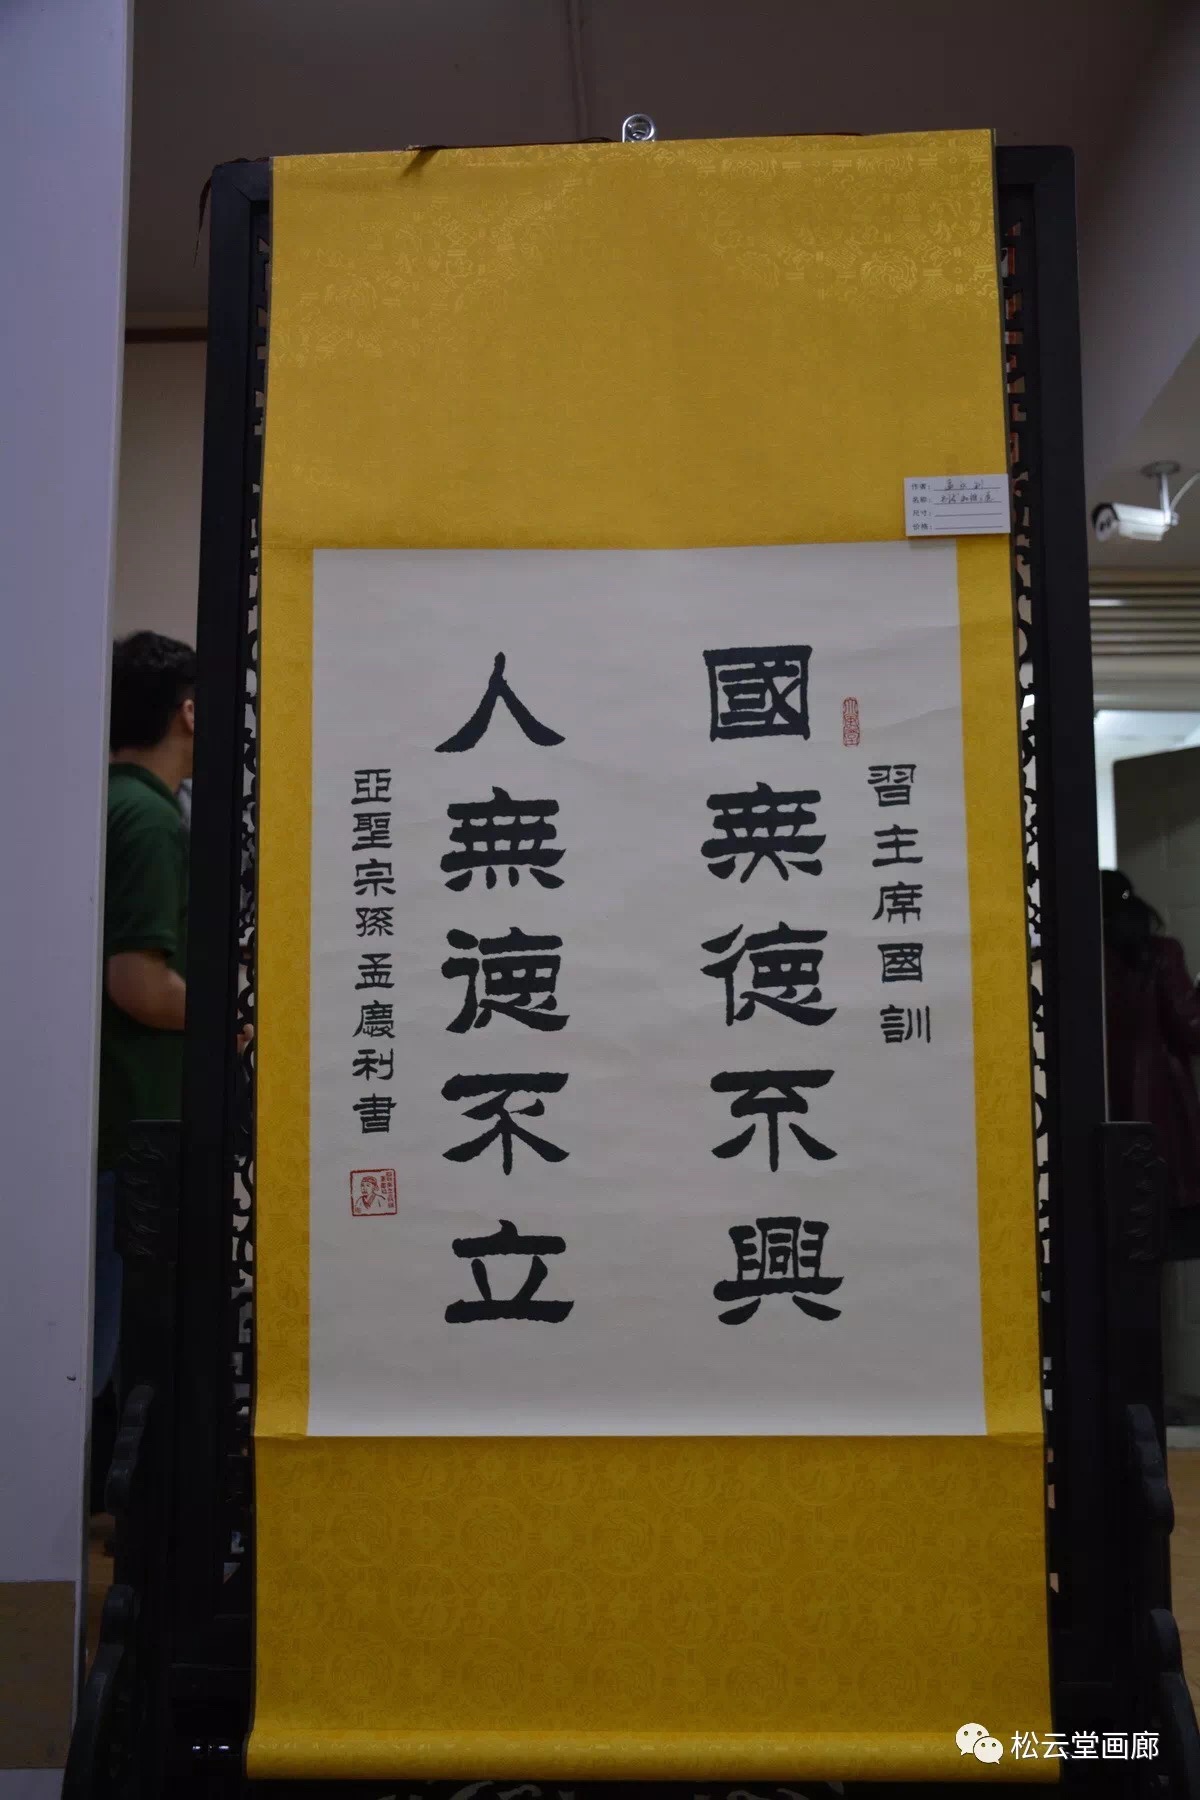 習主席國訓
國無德不興
人無德不立
亞聖宗孫孟慶利書
作者：
名称：
尺寸：
价格：
松云堂画廊